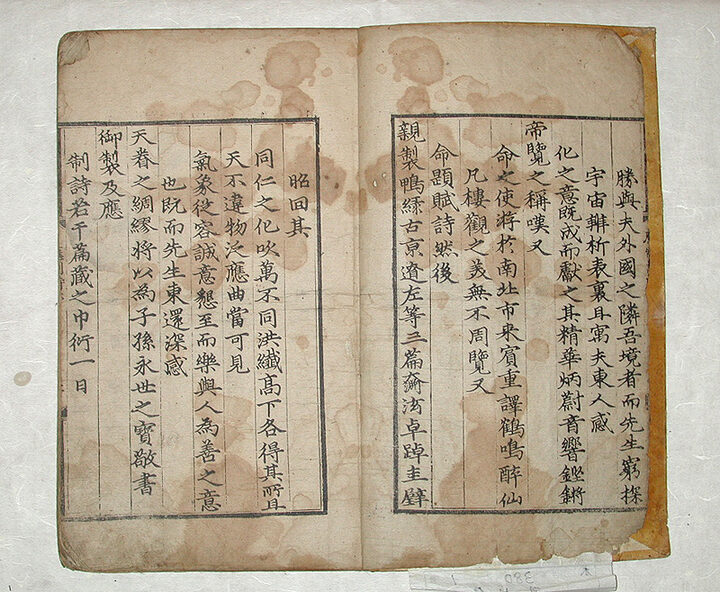 勝與夫外國之隣吾境者而先生窮探
宇宙辨析表裏且寓夫東人感
化之意旣成而獻之其精華炳蔚音響鏗鏘
帝覽之稱嘆又
命之使游於南北市來賓重譯鶴鳴醉仙
凡樓觀之美無不周覽又
命題賦詩然後
親製鴨綠古京遼左等三篇奫法卓踔圭璧
昭回其
同仁之化吹萬不同洪纖高下各得其所且
天不違物泛應曲當可見
氣象從容誠意懇至而樂與人為善之意
也旣而先生東還深感
天眷之綢繆將以為子孫永世之寶敬書
御製及應
制詩若干篇藏之巾衍一日